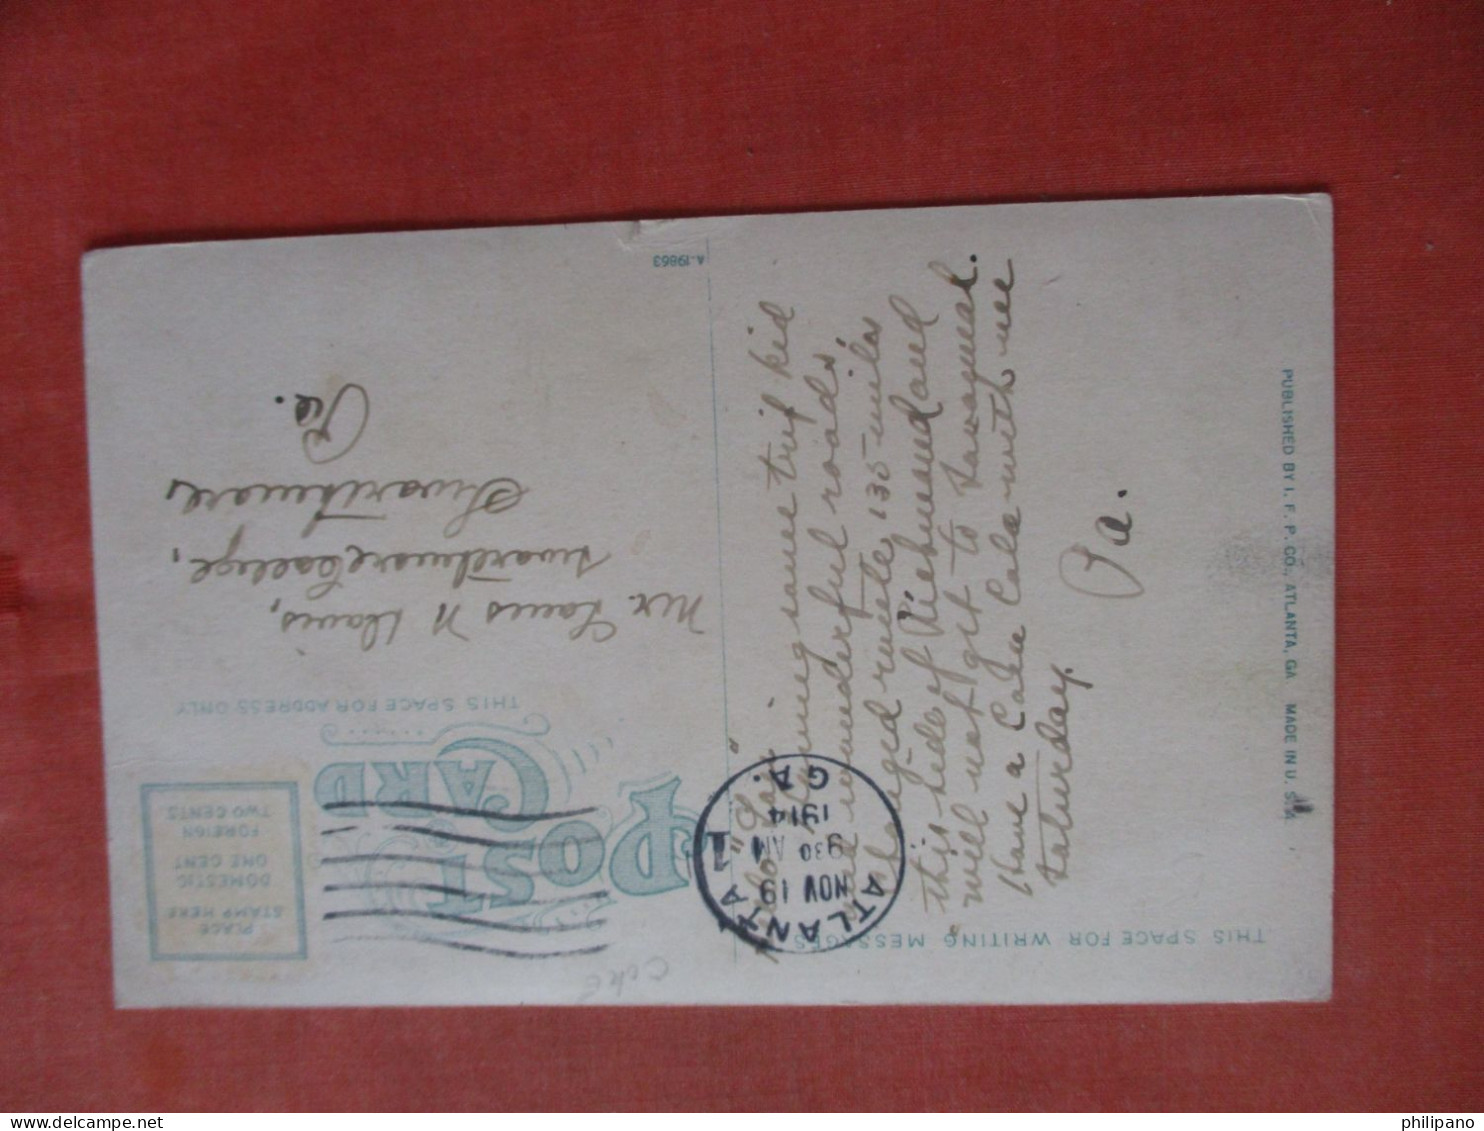 THIS SPACE FOR WRITING MESSAGES
some trip kid
and wonderful roads,
changed route, 135 miles
this side of Richmond and
will not get to Savannah.
Have a Coca Cola with me
Saturday.
Pa.
PUBLISHED BY I. F. P. CO., ATLANTA, GA MADE IN U. S. A.
A-19863
ATLANTA 1
NOV 19
930 AM
1914
GA.
POST
CARD
THIS SPACE FOR ADDRESS ONLY
PLACE
STAMP HERE
DOMESTIC
ONE CENT
FOREIGN
TWO CENTS
Mr. N Davis,
Swarthmore College,
Swarthmore,
Pa.
Coke
philipano